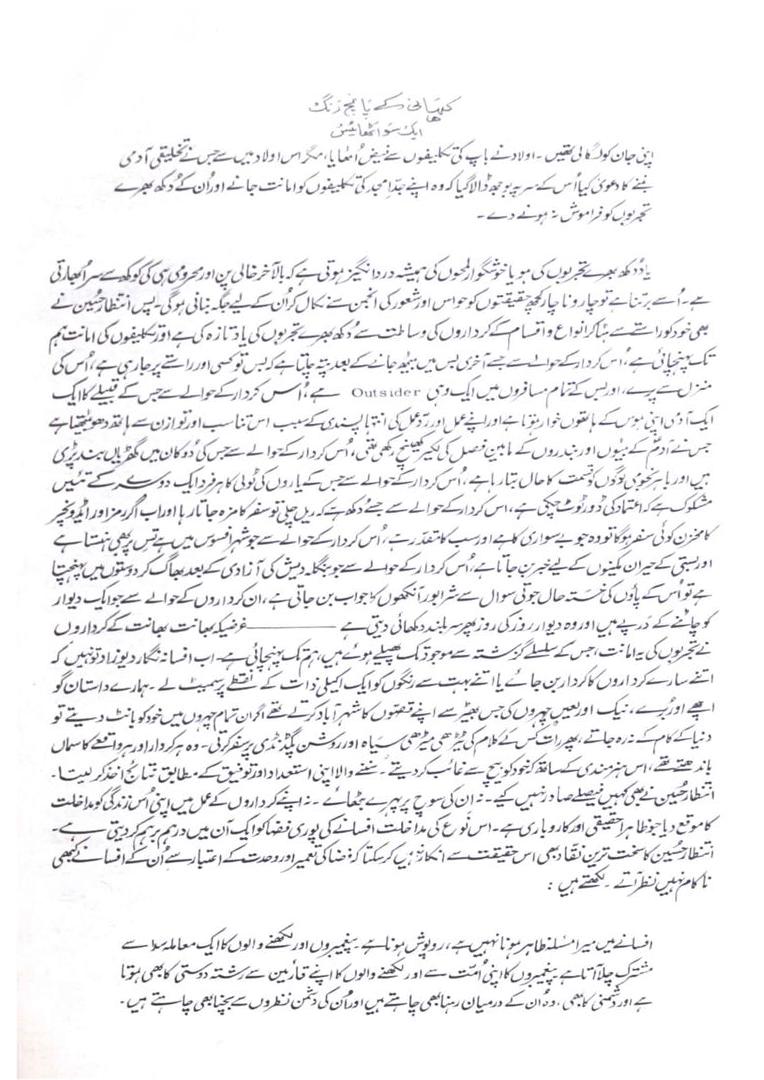 کہانی کے پانچ رنگ
ایک سو اٹھائیس
اپنی جان کو لگا لی تھیں۔ اولاد نے باپ کی تکلیفوں سے فیض اُٹھایا، مگر اس اولاد میں سے جس نے تخلیقی آدمی
بننے کا دعویٰ کیا اُس کے سر یہ بوجھ ڈالا گیا کہ وہ اپنے جدِّ امجد کی تکلیفوں کو امانت جانے اور اُن کے دُکھ بھرے
تجربوں کو فراموش نہ ہونے دے۔
یاد دُکھ بھرے تجربوں کی ہو یا خوشگوار لمحوں کی ہمیشہ درد انگیز ہوتی ہے کہ بالآخر خالی پن اور محرومی ہی کی کوکھ سے سر اُبھارتی
ہے۔ اُسے برتنا ہے تو چار و ناچار کچھ حقیقتوں کو حواس اور شعور کی انجمن سے نکال کر اُن کے لیے جگہ بنانی ہوگی۔ بس انتظار حسین نے
بھی خود کو راستے سے ہٹا کر انواع و اقسام کے کرداروں کی وساطت سے دُکھ بھرے تجربوں کی یاد تازہ کی ہے اور تکلیفوں کی امانت ہم
تک پہنچائی ہے، اُس کردار کے حوالے سے جسے آخری بس میں بیٹھ جانے کے بعد پتہ چلتا ہے کہ بس تو کسی اور راستے پر جا رہی ہے، اُس کی
منزل سے پرے، اور بس کے تمام مسافروں میں ایک وہی Outsider ہے، اُس کردار کے حوالے سے جس کے قبیلے کا ایک
ایک آدمی اپنی ہوس کے ہاتھوں خوار ہوتا ہے اور اپنے عمل اور ردِّ عمل کی انتہا پسندی کے سبب اس تناسب اور توازن سے ہاتھ دھو بیٹھتا ہے
جس نے آدمؑ کے بیٹوں اور بندروں کے مابین فصل کی لکیر کھینچ رکھی تھی، اُس کردار کے حوالے سے جس کی دُوکان میں گھڑیاں بند پڑی
ہیں اور باہر نجومی لوگوں کو قسمت کا حال بتا رہا ہے، اُس کردار کے حوالے سے جس کے یاروں کی ٹولی کا ہر فرد ایک دوسرے کے تئیں
مشکوک ہے کہ اعتماد کی ڈور ٹوٹ چکی ہے، اس کردار کے حوالے سے جسے دُکھ ہے کہ ریل چلی تو سفر کا مزہ جاتا رہا اور اب اگر رمز اور ایڈونچر
کا مخزن کوئی سفر ہوگا تو وہ جو بے سواری کا ہے اور سب کا مقدّر ہے، اُس کردار کے حوالے سے جو شہرِ افسوس میں ہے تِس پر بھی ہنستا ہے
اور بستی کے حیران مکینوں کے لیے خبر بن جاتا ہے، اُس کردار کے حوالے سے جو بنگلہ دیش کی آزادی کے بعد بھاگ کر دوستوں میں پہنچتا
ہے تو اُس کے پاؤں کی خستہ حال جوتی سوال سے شرابور آنکھوں کا جواب بن جاتی ہے، ان کرداروں کے حوالے سے جو ایک دیوار
کو چاٹنے کے درپے ہیں اور وہ دیوار روز کی روز پھر سر بلند دکھائی دیتی ہے ———— غرضیکہ بھانت بھانت کے کرداروں
نے تجربوں کی یہ امانت، جس کے سلسلے گزشتہ سے موجود تک پھیلے ہوئے ہیں، ہم تک پہنچائی ہے۔ اب افسانہ نگار دیوزاد تو نہیں کہ
اتنے سارے کرداروں کا کردار بن جائے یا اتنے بہت سے رنگوں کو ایک اکیلی ذات کے نقطے پر سمیٹ لے۔ ہمارے داستان گو
اچھے اور بُرے، نیک اور لعین چہروں کی جس بھیڑ سے اپنے قصّوں کا شہر آباد کرتے تھے اگر ان تمام چہروں میں خود کو بانٹ دیتے تو
دنیا کے کام کے نہ رہ جاتے، پھر رات کس کے کلام کی ٹیڑھی میڑھی سیاہ اور روشن پگڈنڈی پر سفر کرتی۔ وہ ہر کردار اور ہر واقعے کا سماں
باندھتے تھے، اس ہنرمندی کے ساتھ کہ خود کو بیچ سے غائب کر دیتے۔ سُننے والا اپنی استعداد اور توفیق کے مطابق نتائج اخذ کر لیتا۔
انتظار حسین نے بھی کہیں فیصلے صادر نہیں کیے۔ نہ ان کی سوچ پر پہرے بٹھائے۔ نہ اپنے کرداروں کے عمل میں اپنی اُس زندگی کو مداخلت
کا موقع دیا جو ظاہراً حقیقی اور کاروباری ہے۔ اس نوع کی مداخلت افسانے کی پوری فضا کو ایک آن میں درہم برہم کر دیتی ہے۔
انتظار حسین کا سخت ترین نقاد بھی اس حقیقت سے انکار نہیں کر سکتا کہ فضا کی تعمیر اور وحدت کے اعتبار سے اُن کے افسانے کبھی
ناکام نہیں نظر آتے۔ لکھتے ہیں:
افسانے میں میرا مسئلہ ظاہر ہونا نہیں ہے، روپوش ہونا ہے۔ پیغمبروں اور لکھنے والوں کا ایک معاملہ سدا سے
مشترک چلا آتا ہے پیغمبروں کا اپنی اُمّت سے اور لکھنے والوں کا اپنے قارئین سے رشتہ دوستی کا بھی ہوتا
ہے اور دشمنی کا بھی، وہ اُن کے درمیان رہنا بھی چاہتے ہیں اور اُن کی دشمن نظروں سے بچنا بھی چاہتے ہیں۔